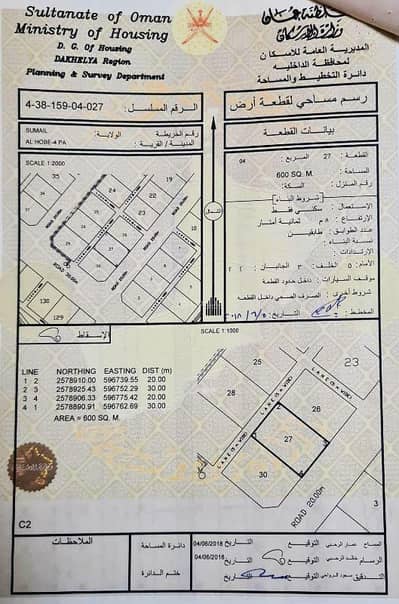 Sultanate of Oman
Ministry of Housing
D. G. Of Housing
DAKHELYA Region
Planning & Survey Department
سلطنة عمان
وزارة الإسكان
المديرية العامة للإسكان
لمحافظة الداخلية
دائرة التخطيط والمساحة
4-38-159-04-027
الرقم المسلسل :
رسم مساحي لقطعة أرض
SUMAIL
الولاية:
رقم الخريطة
AL HOBE-4 PA
المدينة / القرية :
بيانات القطعة
SCALE 1:2000
القطعة : 27
المربع : 04
المساحة : 600 SQ. M.
رقم المنزل :
السكة:
شروط البناء
الاستعمال : سكني فقط
الارتفاع : ٨ م ثمانية أمتار
عدد الطوابق: طابقين
نسبة البناء :
الارتدادات :
الأمام : ٥ الخلف: ٣ الجانبان : ٢ ٢
موقف السيارات : داخل حدود القطعة
شروط أخرى : الصرف الصحي داخل القطعة
المخطط :
التاريخ:
35
25
24
19
16
130
129
ROAD 20.00m
الشمال
الإسقاط
SCALE 1:1000
LINE NORTHING EASTING DIST (m)
1 2 2578910.00 596739.55 20.00
2 3 2578925.43 596752.29 30.00
3 4 2578906.33 596775.42 20.00
4 1 2578890.91 596762.69 30.00
AREA = 600 SQ. M.
25
23
26
27
30
3
ROAD 20.00m
C2
الملاحظات
دائرة المساحة
ختم الدائرة
04/06/2018
التاريخ
التوقيع
المساح
04/06/2018
التاريخ
التوقيع
رسم
التاريخ
التوقيع
التدقيق